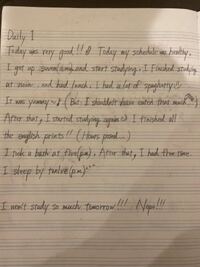 Daily 1
Today was very good!! Today my schedule was healthy.
I got up seven(a.m) and start studying. I finished studying
at noon. and had lunch. I had a lot of spaghetti
It was yummy~♪ (But I shouldn't have eaten that much
After that, I started studying again I finished all
the english prints!! (Hours passed...)
I took a bath at five(p.m), After that, I had free time.
I sleep by twelve(p.m)
I won't study so much tomorrow!!! Nope!!!